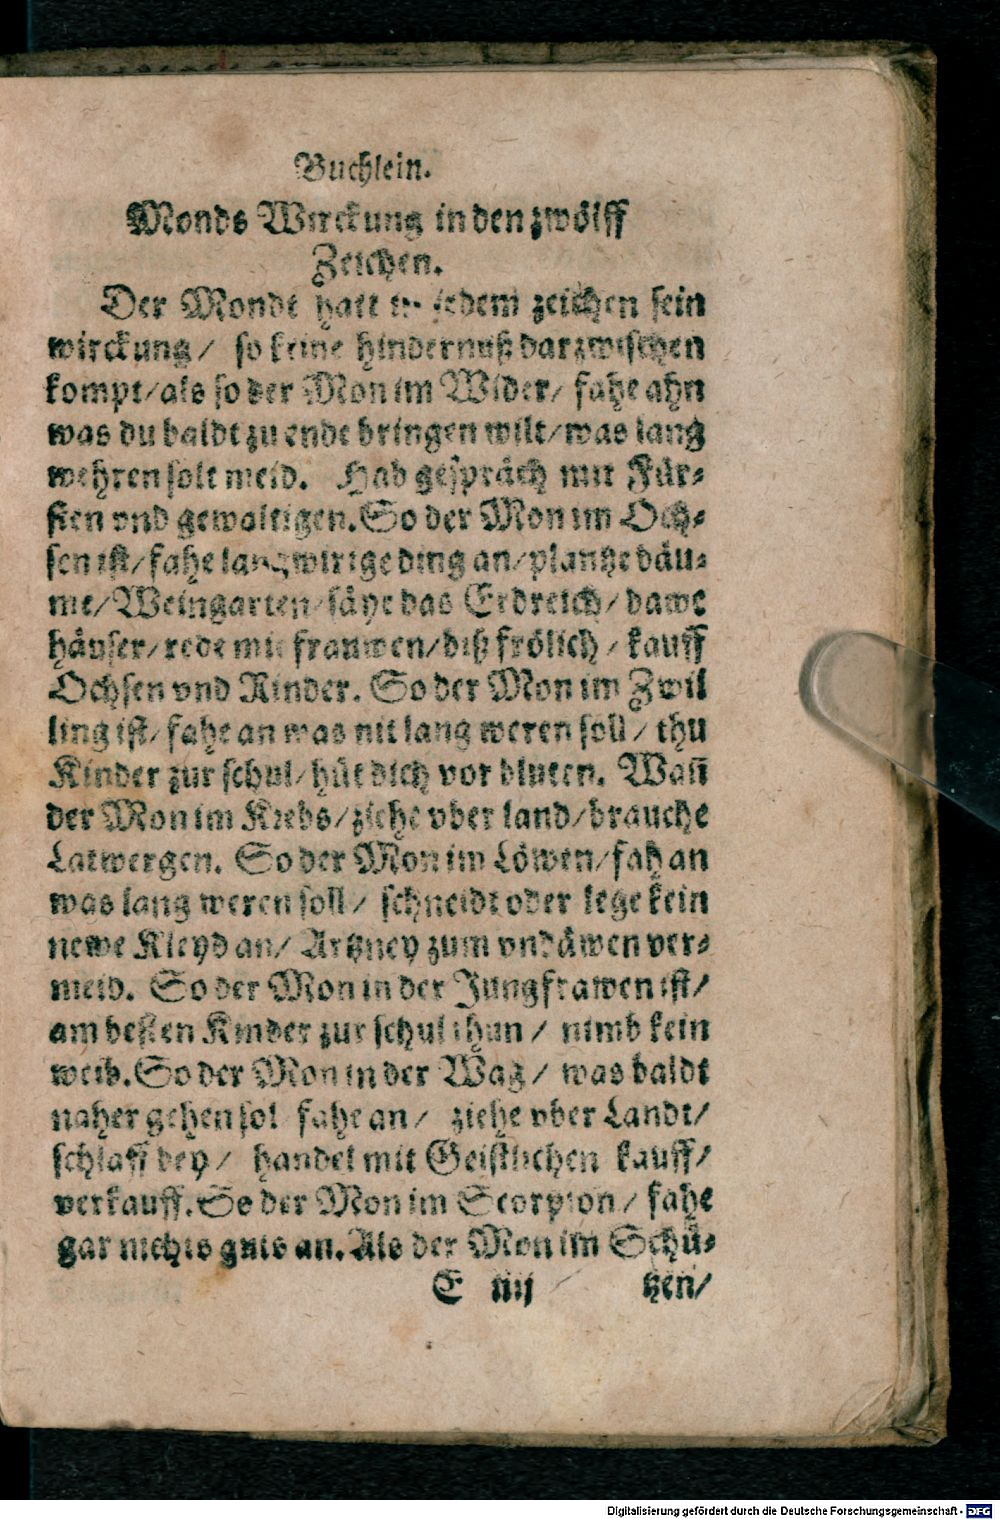 Buchlein.
Monds Wirckung in den zwölff
Zeichen.
Der Mondt hatt in jedem zeichen sein
wirckung / so keine hindernuß darzwischen
kompt/als so der Mon im Wider/ fahe ahn
was du baldt zu ende bringen wilt/was lang
wehren solt meid. Hab gespräch mit Für⸗
sten vnd gewaltigen. So der Mon im Och⸗
sen ist/fahe langwirige ding an/plantze bäu⸗
me/Weingarten/säye das Erdreich/bawe
häuser/rede mit frauwen/biß frölich/kauff
Ochsen vnd Rinder. So der Mon im Zwil
ling ist/fahe an was nit lang weren soll/ thu
Kinder zur schul/hüt dich vor bluten. Wañ
der Mon im Krebs/ziehe vber land/brauche
Latwergen. So der Mon im Löwen/fah an
was lang weren soll/ schneidt oder lege kein
newe Kleyd an/ Artzney zum vndäwen ver⸗
meid. So der Mon in der Jungfrawen ist/
am besten Kinder zur schul thun / nimb kein
weib. So der Mon in der Wag/ was baldt
naher gehen sol fahe an/ ziehe vber Landt/
schlaff bey/ handel mit Geistlichen kauff/
verkauff. So der Mon im Scorpion/ fahe
gar nichts guts an. Als der Mon im Schü⸗
E iiij tzen/
Digitalisierung gefördert durch die Deutsche Forschungsgemeinschaft - DFG